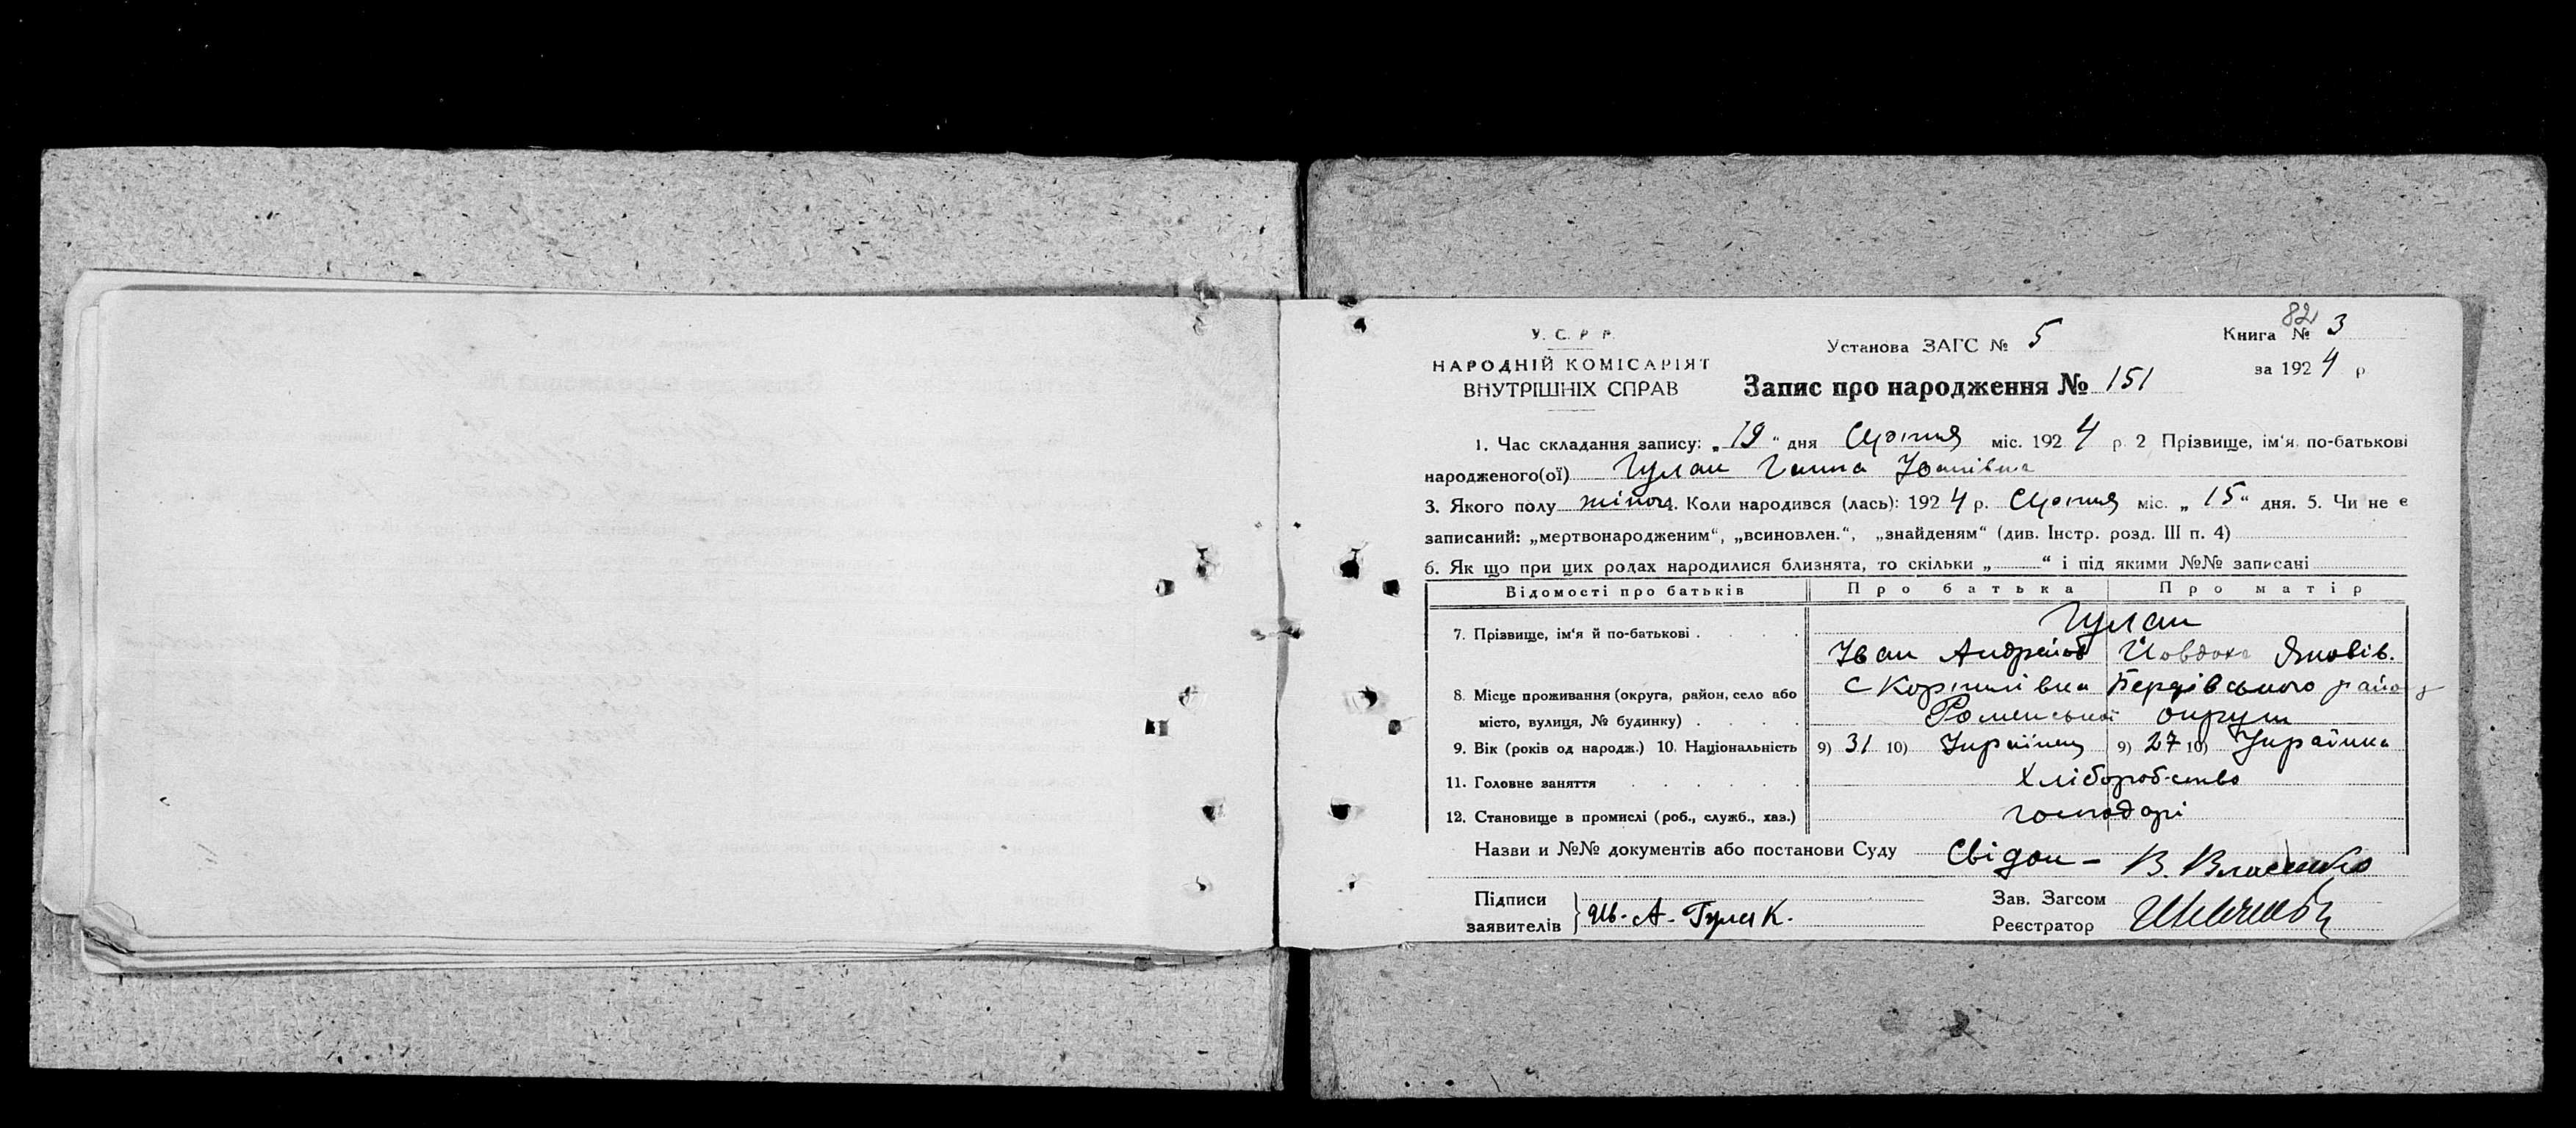 82
У. С. Р. Р.
НАРОДНІЙ КОМІСАРІЯТ
ВНУТРІШНІХ СПРАВ
Установа ЗАГС № 5
Книга № 3
за 1924 р.
Запис про народження № 151
1. Час складання запису: „19“ дня Серпня міс. 1924 р. 2 Прізвище, ім'я, по-батькові
народженого(ої) Гулак Ганна Іванівна
3. Якого полу жіноч. Коли народився (лась): 1924 р. Серпня міс. „15“ дня. 5. Чи не є
записаний: „мертвонародженим“, „всиновлен.“, „знайденям“ (див. Інстр. розд. III п. 4)
6. Як що при цих родах народилися близнята, то скільки „ “ і під якими №№ записані
Відомості про батьків Про батька Про матір
7. Прізвище, ім'я й по-батькові . . . . Гулак
Іван Андрейов Йовдоха Яковів.
8. Місце проживання (округа, район, село або с Коржилівка району
місто, вулиця, № будинку) . . . . Роменської округи
9. Вік (років од народж.) 10. Національність 9) 31 10) Українец 9) 27 10) Українка
11. Головне заняття . . . . . . Хліборобство
12. Становище в промислі (роб., служб., хаз.) господарі
Назви и №№ документів або постанови Суду Свідок - В. Власенко
Підписи
заявителів } Ив. А. Гулак.
Зав. Загсом
Реєстратор